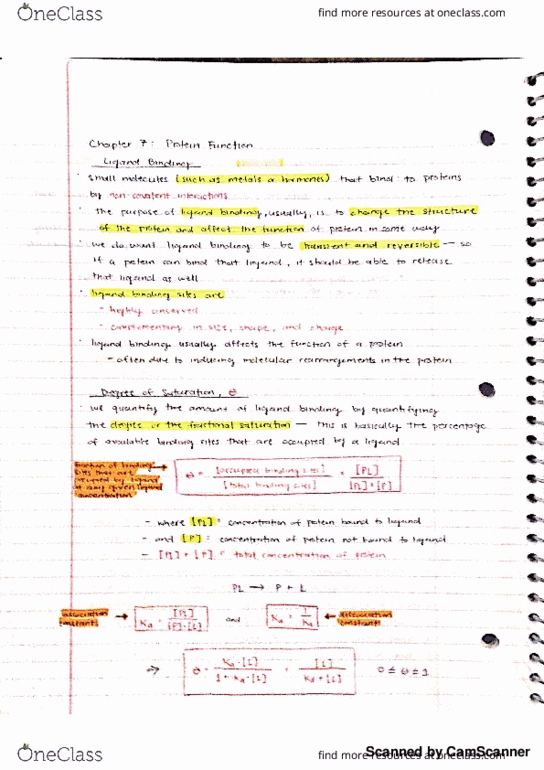 OneClass
find more resources at oneclass.com
Chapter 7: Protein Function
Ligand Binding
· small molecules (such as metals & hormones) that bind to proteins
by non-covalent interactions
· the purpose of ligand binding, usually, is to change the structure
of the protein and affect the function of protein in some way
· we do want ligand binding to be transient and reversible — so
if a potein can bind that ligand, it should be able to release
that ligand as well
· ligand binding sites are
- highly conserved
- complementing in size, shape, and charge
· ligand binding usually affects the function of a protein
- often due to inducing molecular rearrangements in the protein
Degree of Saturation, θ
· we quantify the amount of ligand binding by quantifying
the degree or the fractional saturation — this is basically the percentage
of available binding sites that are occupied by a ligand
fraction of binding
sites that are
occupied by ligand
at any given ligand
concentration
θ = [occupied binding sites] / [total binding sites] = [PL] / [PL]+[P]
- where [PL] = concentration of potein bound to ligand
- and [P] = concentration of protein not bound to ligand
- [PL] + [P] = total concentration of protein
PL → P + L
association constant → Ka = [PL] / [P]·[L] and Kd = 1 / Ka ← dissociation constant
→ θ = Ka·[L] / 1 + Ka·[L] = [L] / Kd + [L] 0 ≤ θ ≤ 1
OneClass
find more resources at oneclass.com
Scanned by CamScanner